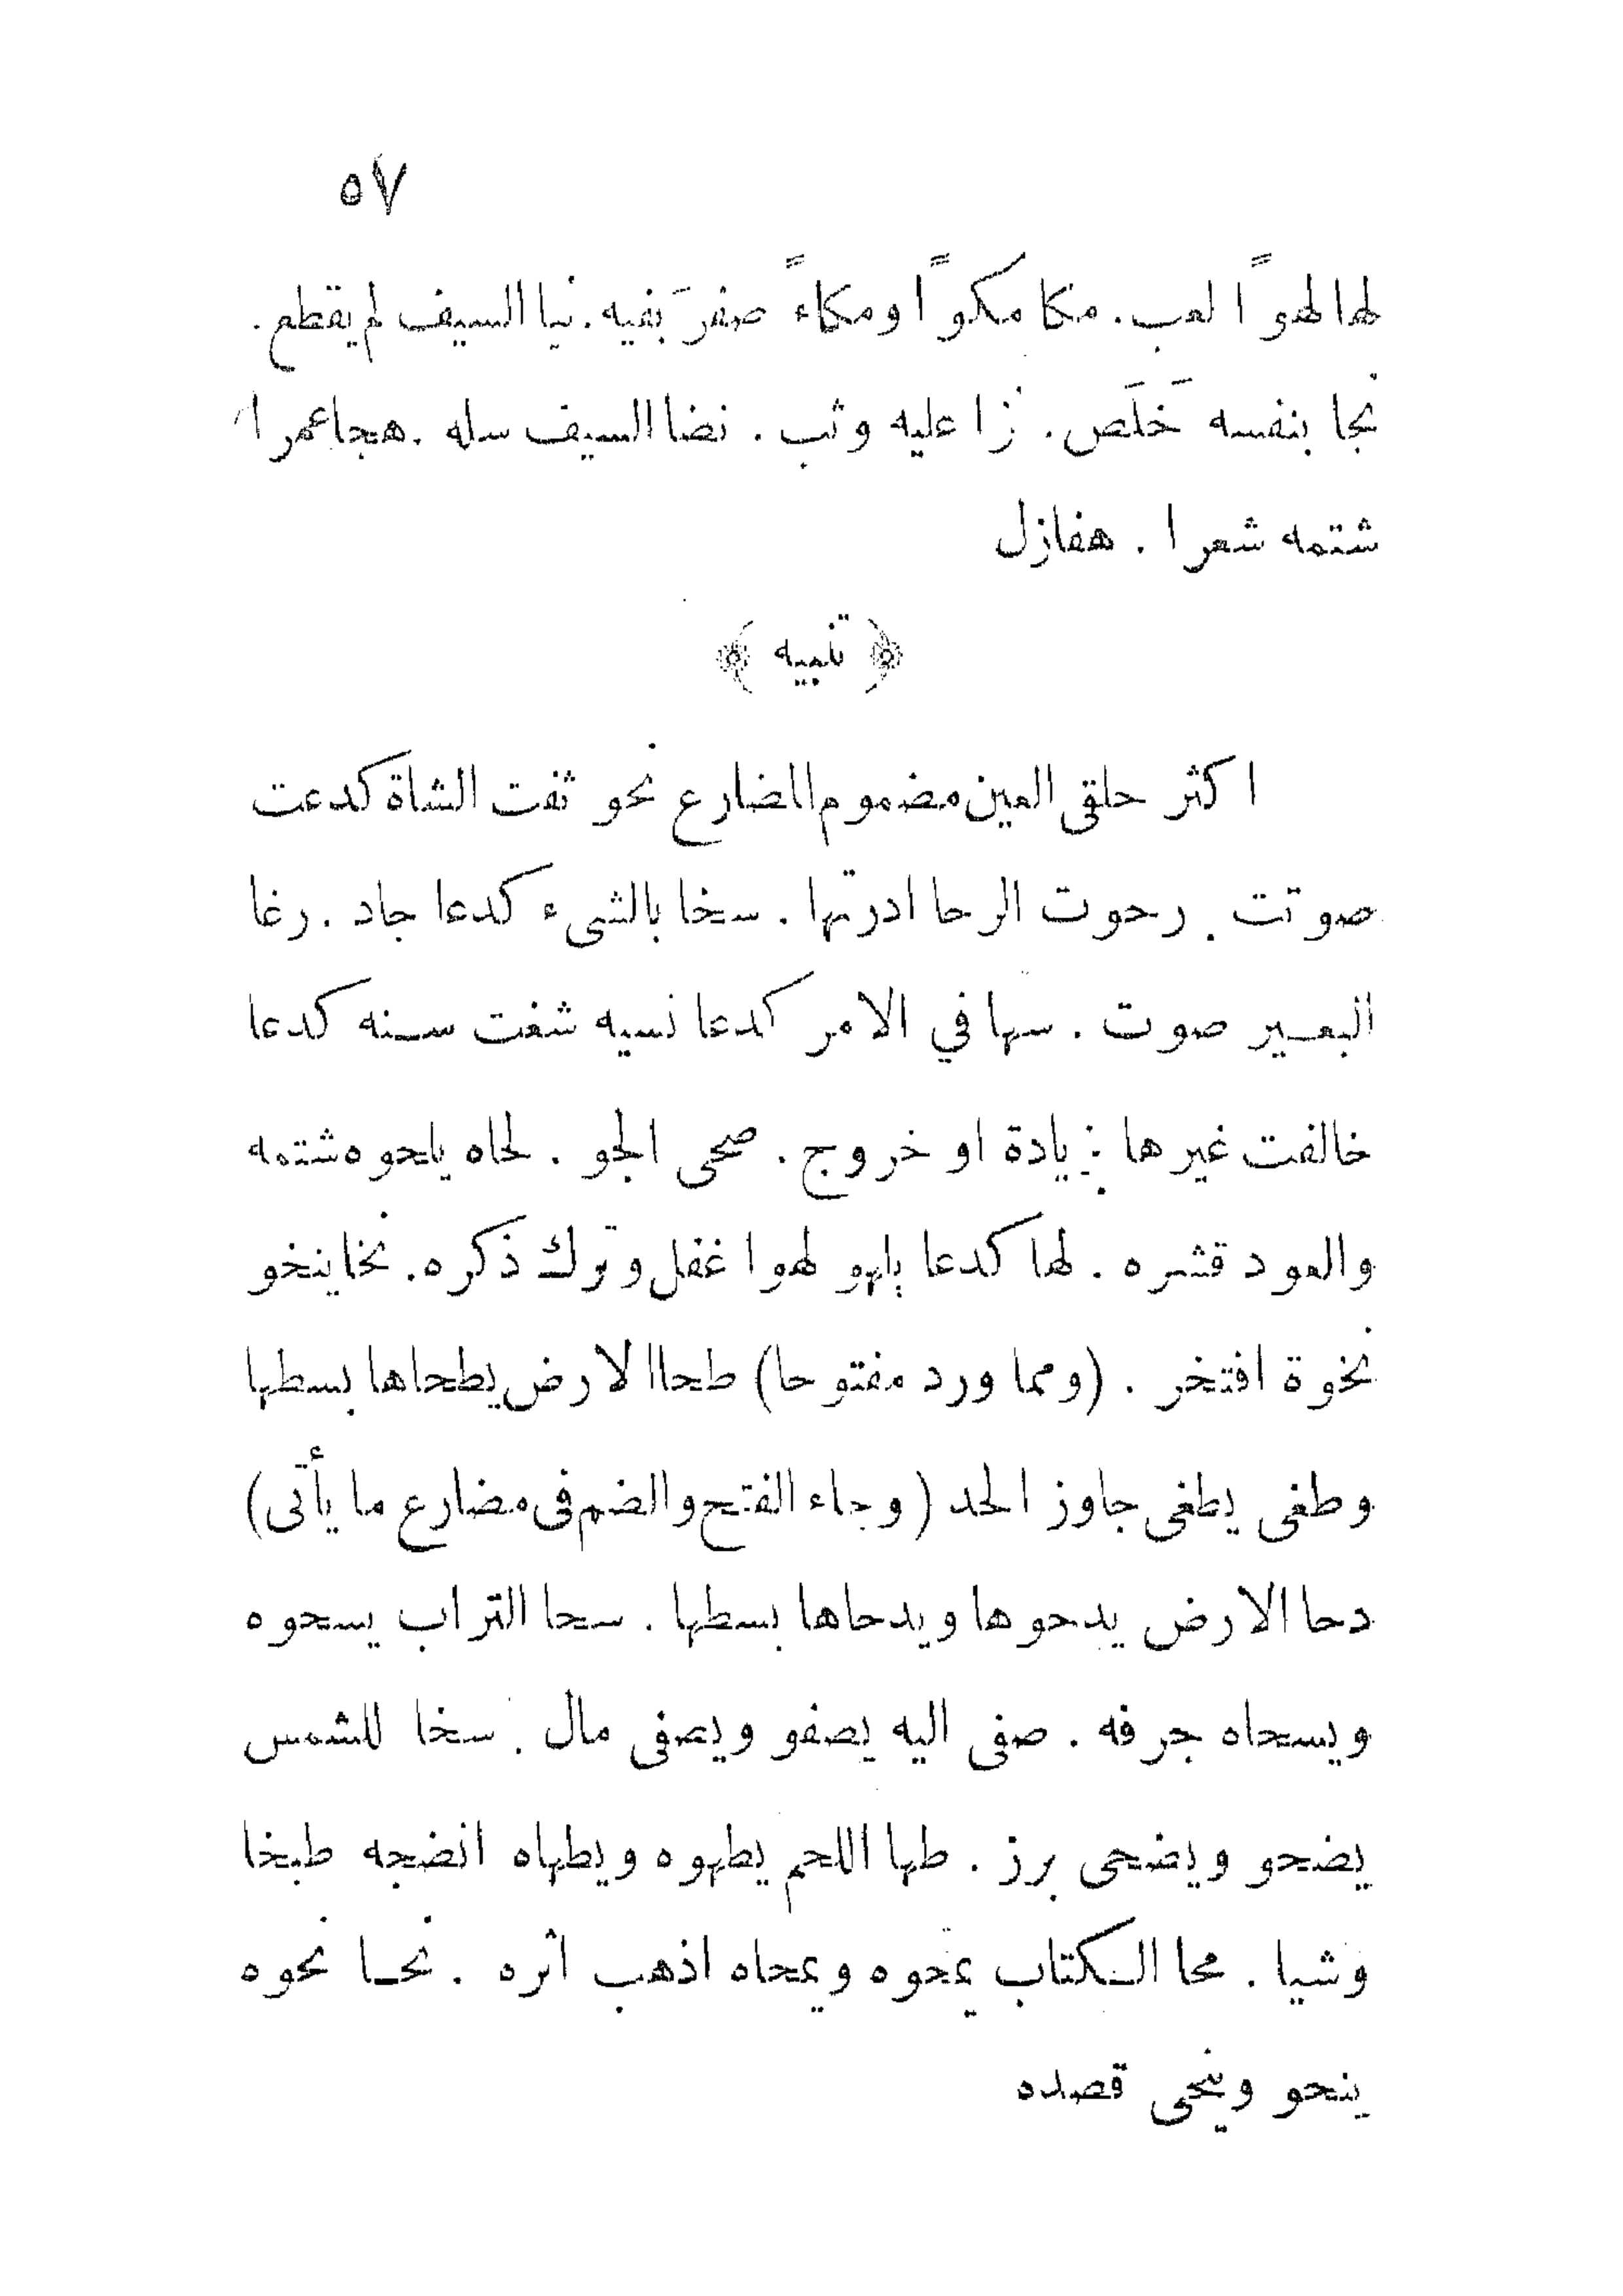 ٥٧
لها لهواً لعب. مكا مكواً ومكاءً صفرَ بفيه. نبا السيف لم يقطع.
نجا بنفسه خَلَص. نزا عليه وثب. نضا السيف سله. هجا عمرا
شتمه شعرا. هفا زل
﴿ تنبيه ﴾
اكثر حلقى العين مضموم المضارع نحو ثغت الشاة كدعت
صوتت. رحوت الرحا ادرتها. سخا بالشىء كدعا جاد. رغا
البعير صوت. سها في الامر كدعا نسيه شغت سنه كدعا
خالفت غيرها بزيادة او خروج. صحى الجو. لحاه يلحوه شتمه
والعود قشره. لها كدعا يلهو لهوا غفل وترك ذكره. نخا ينخو
نخوة افتخر. (ومما ورد مفتوحا) طحا الارض يطحاها بسطها
وطغى يطغى جاوز الحد (وجاء الفتح والضم فى مضارع ما يأتى)
دحا الارض يدحوها ويدحاها بسطها. سحا التراب يسحوه
ويسحاه جرفه. صغى اليه يصغو ويصغى مال. سخا للشمس
يضحو ويضحى برز. طها اللحم يطهوه ويطهاه انضجه طبخا
وشيا. محا الكتاب يمحوه ويمحاه اذهب اثره. نحا نحوه
ينحو وينحى قصده